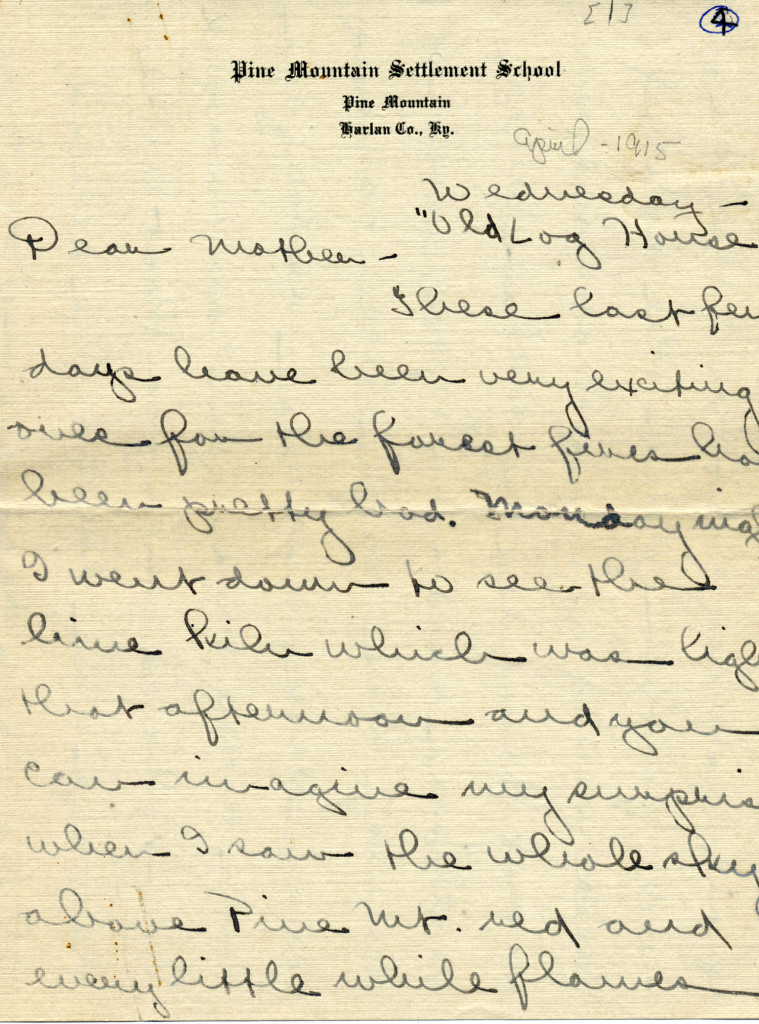 [1]
4
Pine Mountain Settlement School
Pine Mountain
Harlan Co., Ky.
April - 1915
Wednesday -
"Old Log House
Dear Mother -
These last few
days have been very exciting
ones for the forest fires ha
been pretty bad. Monday nigh
I went down to see the
lime kiln which was ligh
that afternoon and you
can imagine my surpris
when I saw the whole sky
above Pine Mt. red and
every little while flames